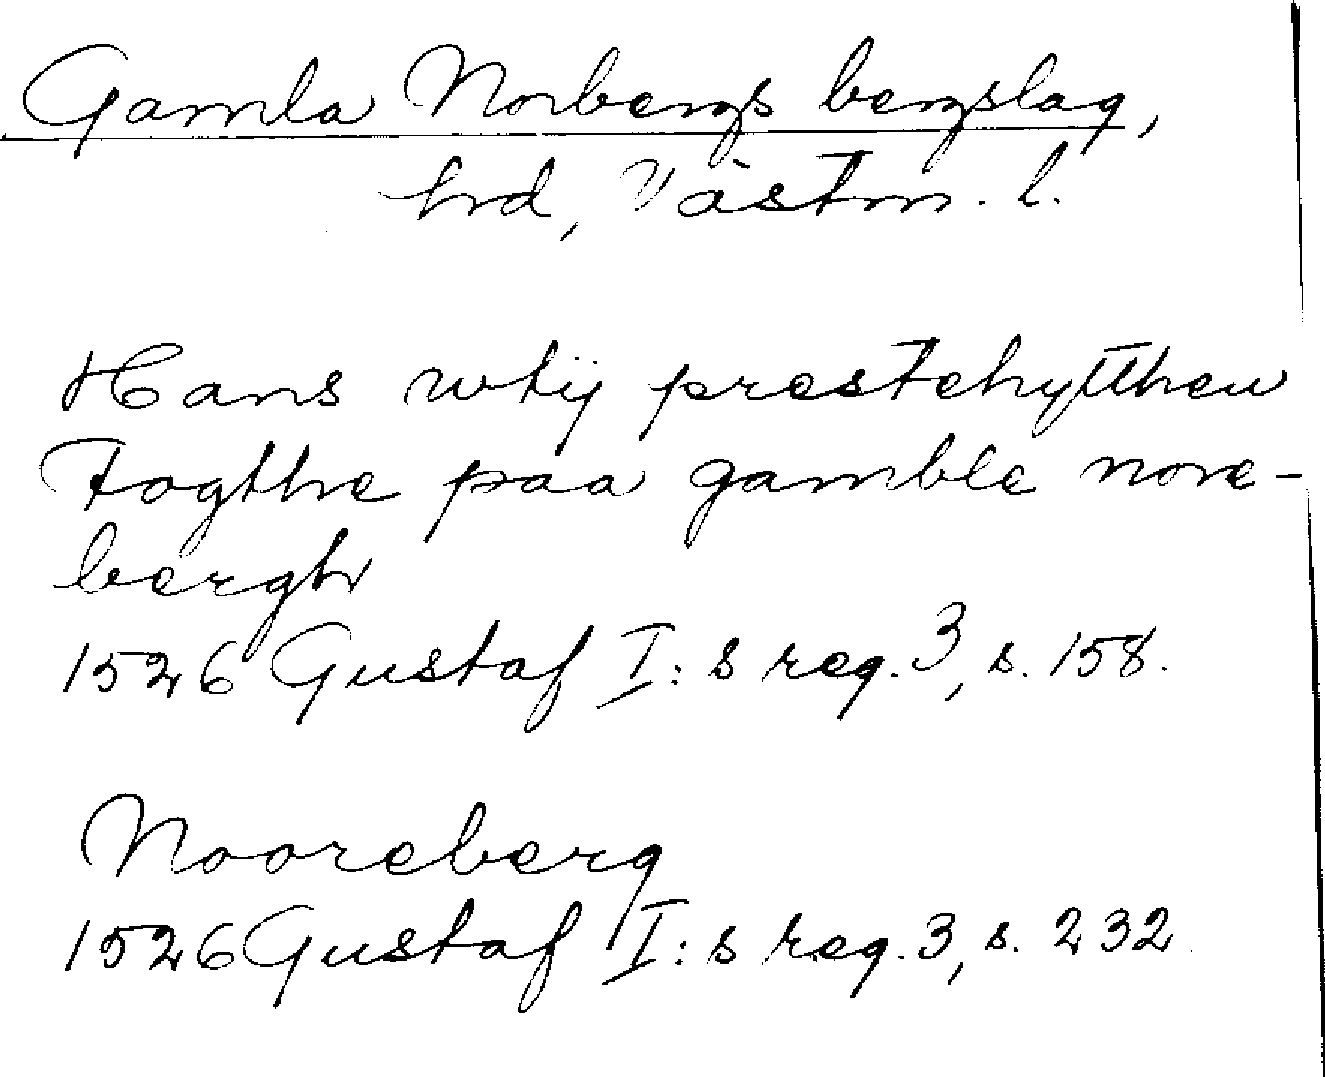 Gamla Norbergs bergslag,
hrd, Västm. l.
Hans wtij prestehyttheu
Fogthe paa gamble nore-
bergh
1526 Gustaf I:s reg. 3, s. 158.
Nooreberg
1526 Gustaf I:s reg. 3, s. 232